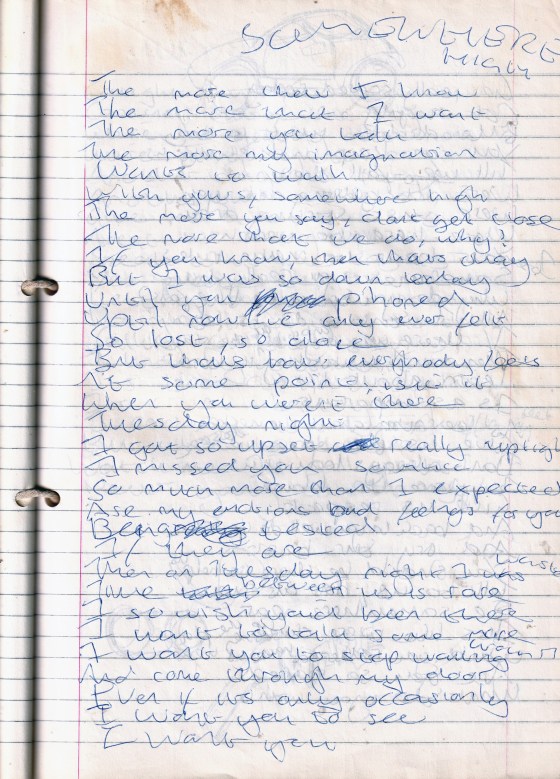 SOMEWHERE
HIGH
The more then I know
The more that I want
The more you talk
The more my imagination
Wants to walk
With yours, somewhere high
The more you say, dont get close
The more that we do, why?
If you know, then thats okay
But I was so down today
Until you phoned
Uptil now I've only ever felt
So lost, so alone
But thats how everybody feels
At some point, isn't it
When you weren't there
Tuesday night
I got so upset really uptight
I missed you
So much more than I expected
Are my emotions and feelings for you
Being tested
If they are
Then on Tuesday night I was
Time between us is rare
I so wish you'd been there
I want to talk some more
I want you to stop walking
And come through my door
Even if its only occasionly
I want you to see
I want you